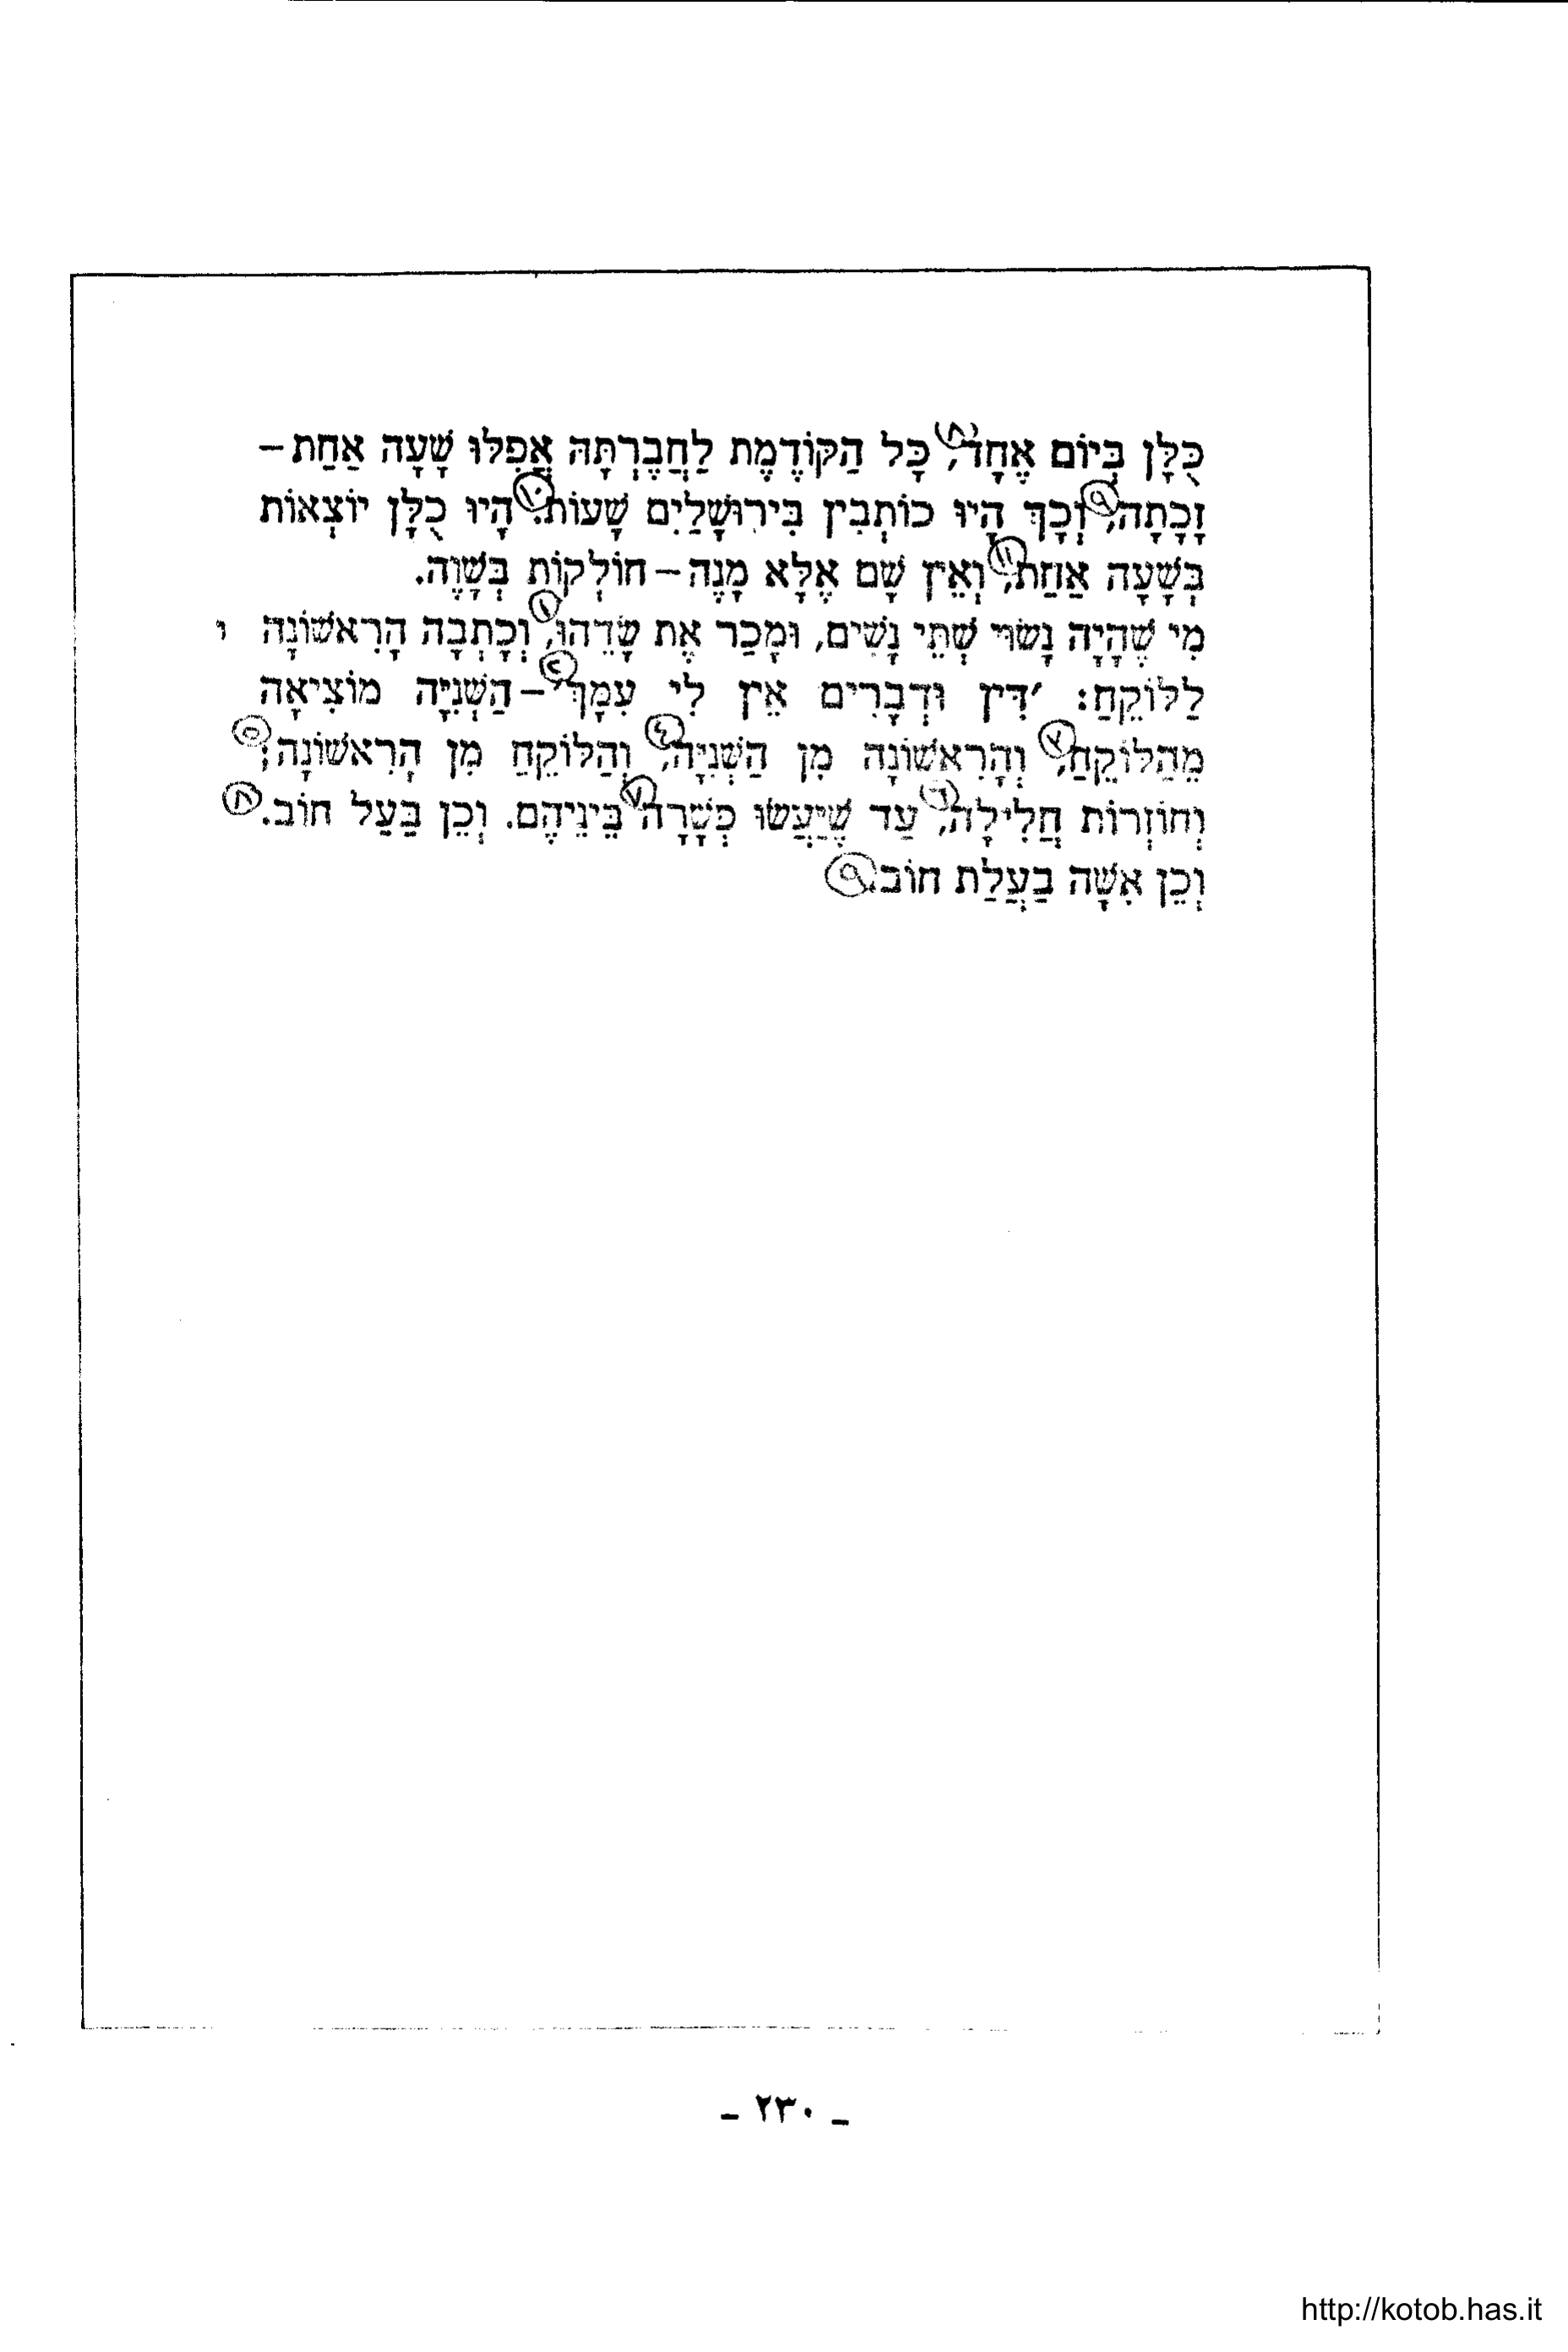 כֻּלָּן בְּיוֹם אֶחָד, (٨) כָּל הַקּוֹדֶמֶת לַחֲבֶרְתָּהּ אֲפִלּוּ שָׁעָה אַחַת –
זָכָתָה, (٩) וְכָךְ הָיוּ כוֹתְבִין בִּירוּשָׁלַיִם שָׁעוֹת. (١٠) הָיוּ כֻלָּן יוֹצְאוֹת
בְּשָׁעָה אַחַת, (١١) וְאֵין שָׁם אֶלָּא מָנֶה – חוֹלְקוֹת בְּשָׁוֶה.
ו מִי שֶׁהָיָה נָשׂוּי שְׁתֵּי נָשִׁים, וּמָכַר אֶת שָׂדֵהוּ, (١) וְכָתְבָה הָרִאשׁוֹנָה
לַלּוֹקֵחַ: ׳דִּין וּדְבָרִים אֵין לִי עִמָּךְ׳ (٢) – הַשְּׁנִיָּה מוֹצִיאָה
מֵהַלּוֹקֵחַ, (٧) וְהָרִאשׁוֹנָה מִן הַשְּׁנִיָּה, (٤) וְהַלּוֹקֵחַ מִן הָרִאשׁוֹנָה; (٥)
וְחוֹזְרוֹת חֲלִילָה, (٦) עַד שֶׁיַּעֲשׂוּ פְשָׁרָה (٧) בֵּינֵיהֶם. וְכֵן בַּעַל חוֹב. (٨)
וְכֵן אִשָּׁה בַעֲלַת חוֹב. (٩)
- ٢٣٠ -
http://kotob.has.it